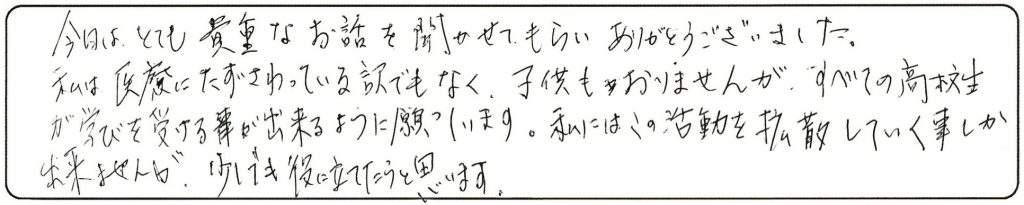 今日は、とても貴重なお話を聞かせてもらいありがとうございました。
私は医療にたずさわっている訳でもなく、子供もおりませんが、すべての高校生
が学びを受ける事が出来るように願っています。私にはこの活動を拡散していく事しか
出来ませんが、少しでも役に立てたらと思います。